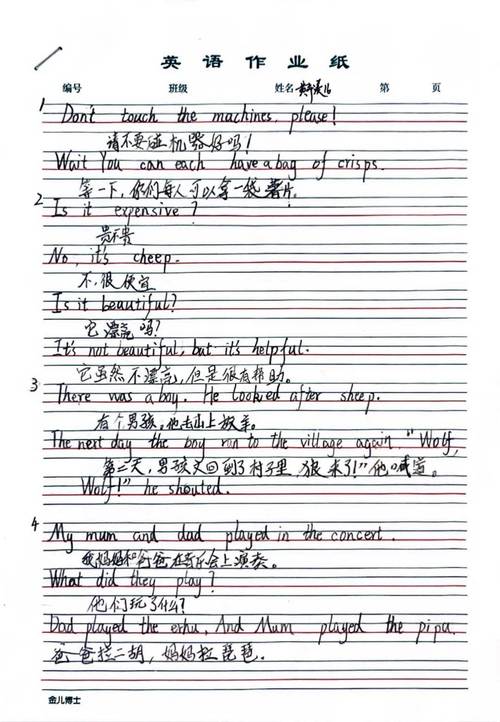 英语作业纸
编号 班级 姓名 第 页
1 Don't touch the machines, please!
请不要碰机器好吗!
Wait You can each have a bag of crisps.
等一下,你们每人可以拿一袋薯片.
2 Is it expensive?
贵不贵
No, it's cheep.
不,很便宜
Is it beautiful?
它漂亮吗?
It's not beautiful, but it's helpful.
它虽然不漂亮,但是很有帮助。
3 There was a boy. He looked after sheep.
有个男孩,他去山上放羊。
The next day the boy run to the village again. "Wolf,
第二天,男孩又回到了村子里,狼来了!"他喊道
Wolf!" he shouted.
4 My mum and dad played in the concert.
我妈妈和爸爸在音乐会上演奏。
What did they play?
他们玩了什么?
Dad played the erhu, And Mum played the pipa.
爸爸拉二胡,妈妈拉琵琶.
金儿博士